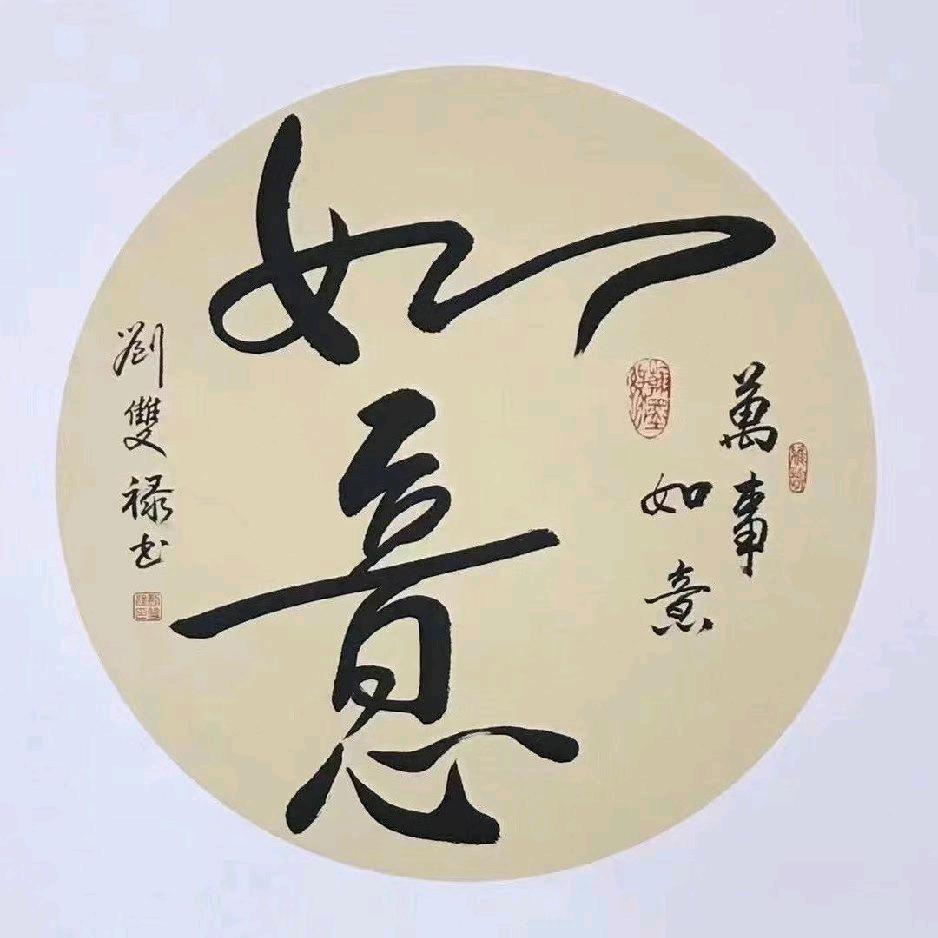 萬事
如意
如意
劉雙祿书